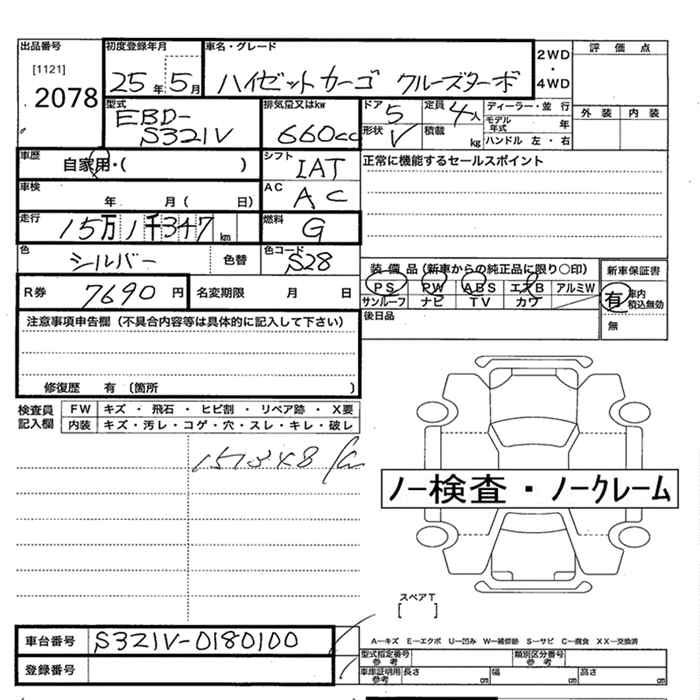 出品番号 初度登録年月 車名・グレード 2WD・4WD 評価点
[1121]
2078 25年5月 ハイゼットカーゴ クルーズターボ
型式 排気量又はkw ドア 定員 ディーラー・並行 外装 内装
EBD-S321V 660cc 5 4人 モデル年式 年
形状 V 積載 kg ハンドル 左・右
車歴 自家用・( ) シフト IAT 正常に機能するセールスポイント
車検 年 月( 日) AC AC
走行 15万1千347km 燃料 G
色 シルバー 色替 色コード S28
装備品(新車からの純正品に限り○印) 新車保証書
R券 7690円 名変期限 月 日
PS PW ABS エアB アルミW
サンルーフ ナビ TV カワ
有 車内積込無効
無
後日品
注意事項申告欄(不具合内容等は具体的に記入して下さい)
修復歴 有 〔箇所 〕
検査員記入欄 FW キズ・飛石・ヒビ割・リペア跡・X要
内装 キズ・汚レ・コゲ・穴・スレ・キレ・破レ
151348km
ノー検査・ノークレーム
スペアT
[ ]
車台番号 S321V-0180100
A－キズ E－エクボ U－凹み W－補修跡 S－サビ C－腐食 XX－交換済
登録番号
型式指定番号 参考 類別区分番号 参考
車庫証明用 参考 長さ cm 幅 cm 高さ cm